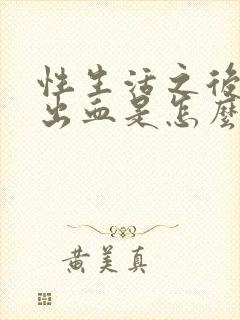 性生活之後
出血是怎麼
黄美真